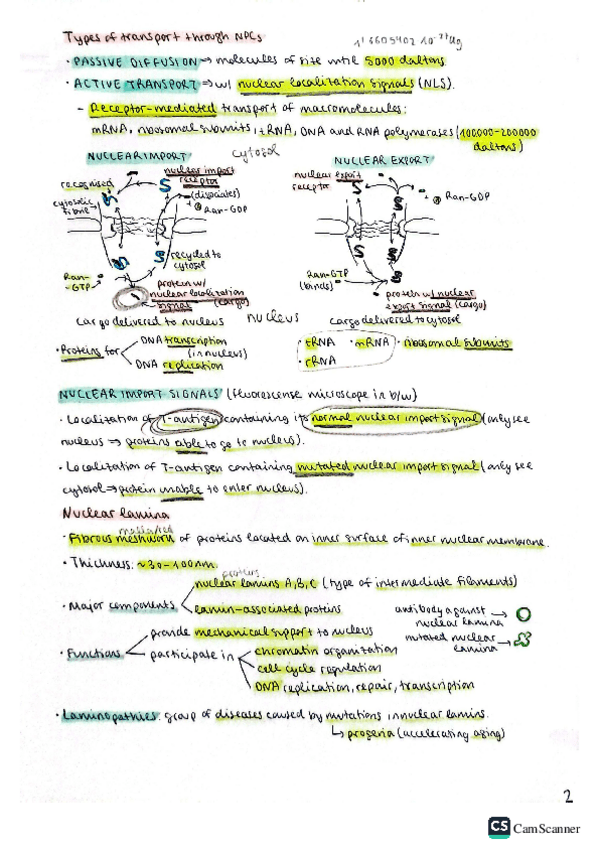 Types of transport through NPCs
1'6605402 10⁻²⁷ kg
· PASSIVE DIFFUSION → molecules of size until 5000 daltons.
· ACTIVE TRANSPORT → w/ nuclear localization signals (NLS).
- Receptor-mediated transport of macromolecules:
mRNA, ribosomal subunits, tRNA, DNA and RNA polymerases (100000-200000
daltons)
NUCLEAR IMPORT
cytosol
NUCLEAR EXPORT
recognised
nuclear import
receptor
nuclear export
receptor
cytosolic
fibrils
Ran-GDP
Ran-GDP
recycled to
cytosol
Ran-
GTP
protein w/
nuclear localization
signal (cargo)
Ran-GTP
(binds)
protein w/ nuclear
export signal (cargo)
cargo delivered to nucleus
nucleus
cargo delivered to cytosol
· Proteins for
DNA transcription
(in nucleus)
DNA replication
· tRNA
· mRNA
· ribosomal subunits
· rRNA
NUCLEAR IMPORT SIGNALS (fluorescense microscope in b/w)
· Localization of T-antigen containing its normal nuclear import signal (only see
nucleus → proteins able to go to nucleus).
· Localization of T-antigen containing mutated nuclear import signal (only see
cytosol → protein unable to enter nucleus).
Nuclear lamina
· Fibrous meshwork of proteins located on inner surface of inner nuclear membrane.
· Thickness: ~30-100nm.
proteins
· Major components
nuclear lamins A,B,C (type of intermediate filaments)
lamin-associated proteins
antibody against
nuclear lamina
mutated nuclear
lamina
· Functions
provide mechanical support to nucleus
participate in
chromatin organization
cell cycle regulation
DNA replication, repair, transcription
· Laminopathies: group of diseases caused by mutations in nuclear lamins.
↳ progeria (accelerating aging)
2
CS CamScanner